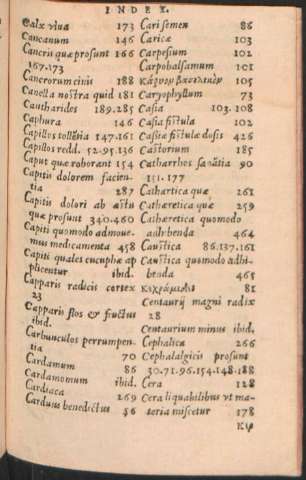 INDEX.
Calx viva 173
Cancanum 146
Cancri quæ prosunt 166
167.173
Cancrorum cinis 188
Canella nostra quid 181
Cantharides 189.285
Caphura 146
Capillos tollētia 147.161
Capillos redd. 52.95.136
Caput quæ roborant 154
Capitis dolorem facien-
tia 287
Capitis dolori ab æstu
quæ prosunt 340.460
Capiti quomodo admoue-
mus medicamenta 458
Capiti quales cucuphæ ap
plicentur ibid.
Capparis radicis cortex
23
Capparis flos & fructus
ibid.
Carbunculos perrumpen-
tia 70
Cardamum 86
Cardamomum ibid.
Cardiaca 269
Carduus benedictus 56
Cari semen 86
Caricæ 103
Carpesium 102
Carpobalsamum 101
Κάρυον βασιλικὸν 105
Caryophyllum 73
Casia 103.108
Casia fistula 102
Casiæ fistulæ dosis 426
Castorium 185
Catharrhos sanātia 90
151.177
Cathartica quæ 261
Cathæretica quæ 259
Cathæretica quomodo
adhibenda 464
Caustica 86.137.161
Caustica quomodo adhi-
benda 465
81
Centaurij magni radix
28
Centaurium minus ibid.
Cephalica 266
Cephalalgicis prosunt
30.71.96.154.148.188
Cera 128
Cera liquabilibus vt ma-
teria miscetur 178